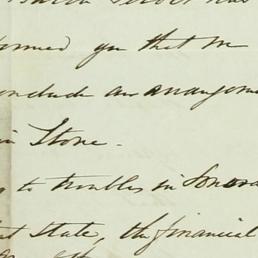 formed you that Mr
conclude an arrangeme
in Stone.
to troubles in Sonora
State, the financial